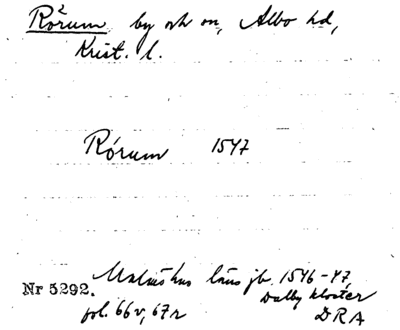 Rörum by och sn, Albo hd,
Krist. l.
Rórum 1547
Malmöhus läns jb. 1546-47,
Dalby kloster
Nr 5292. fol. 66v, 67r DRA